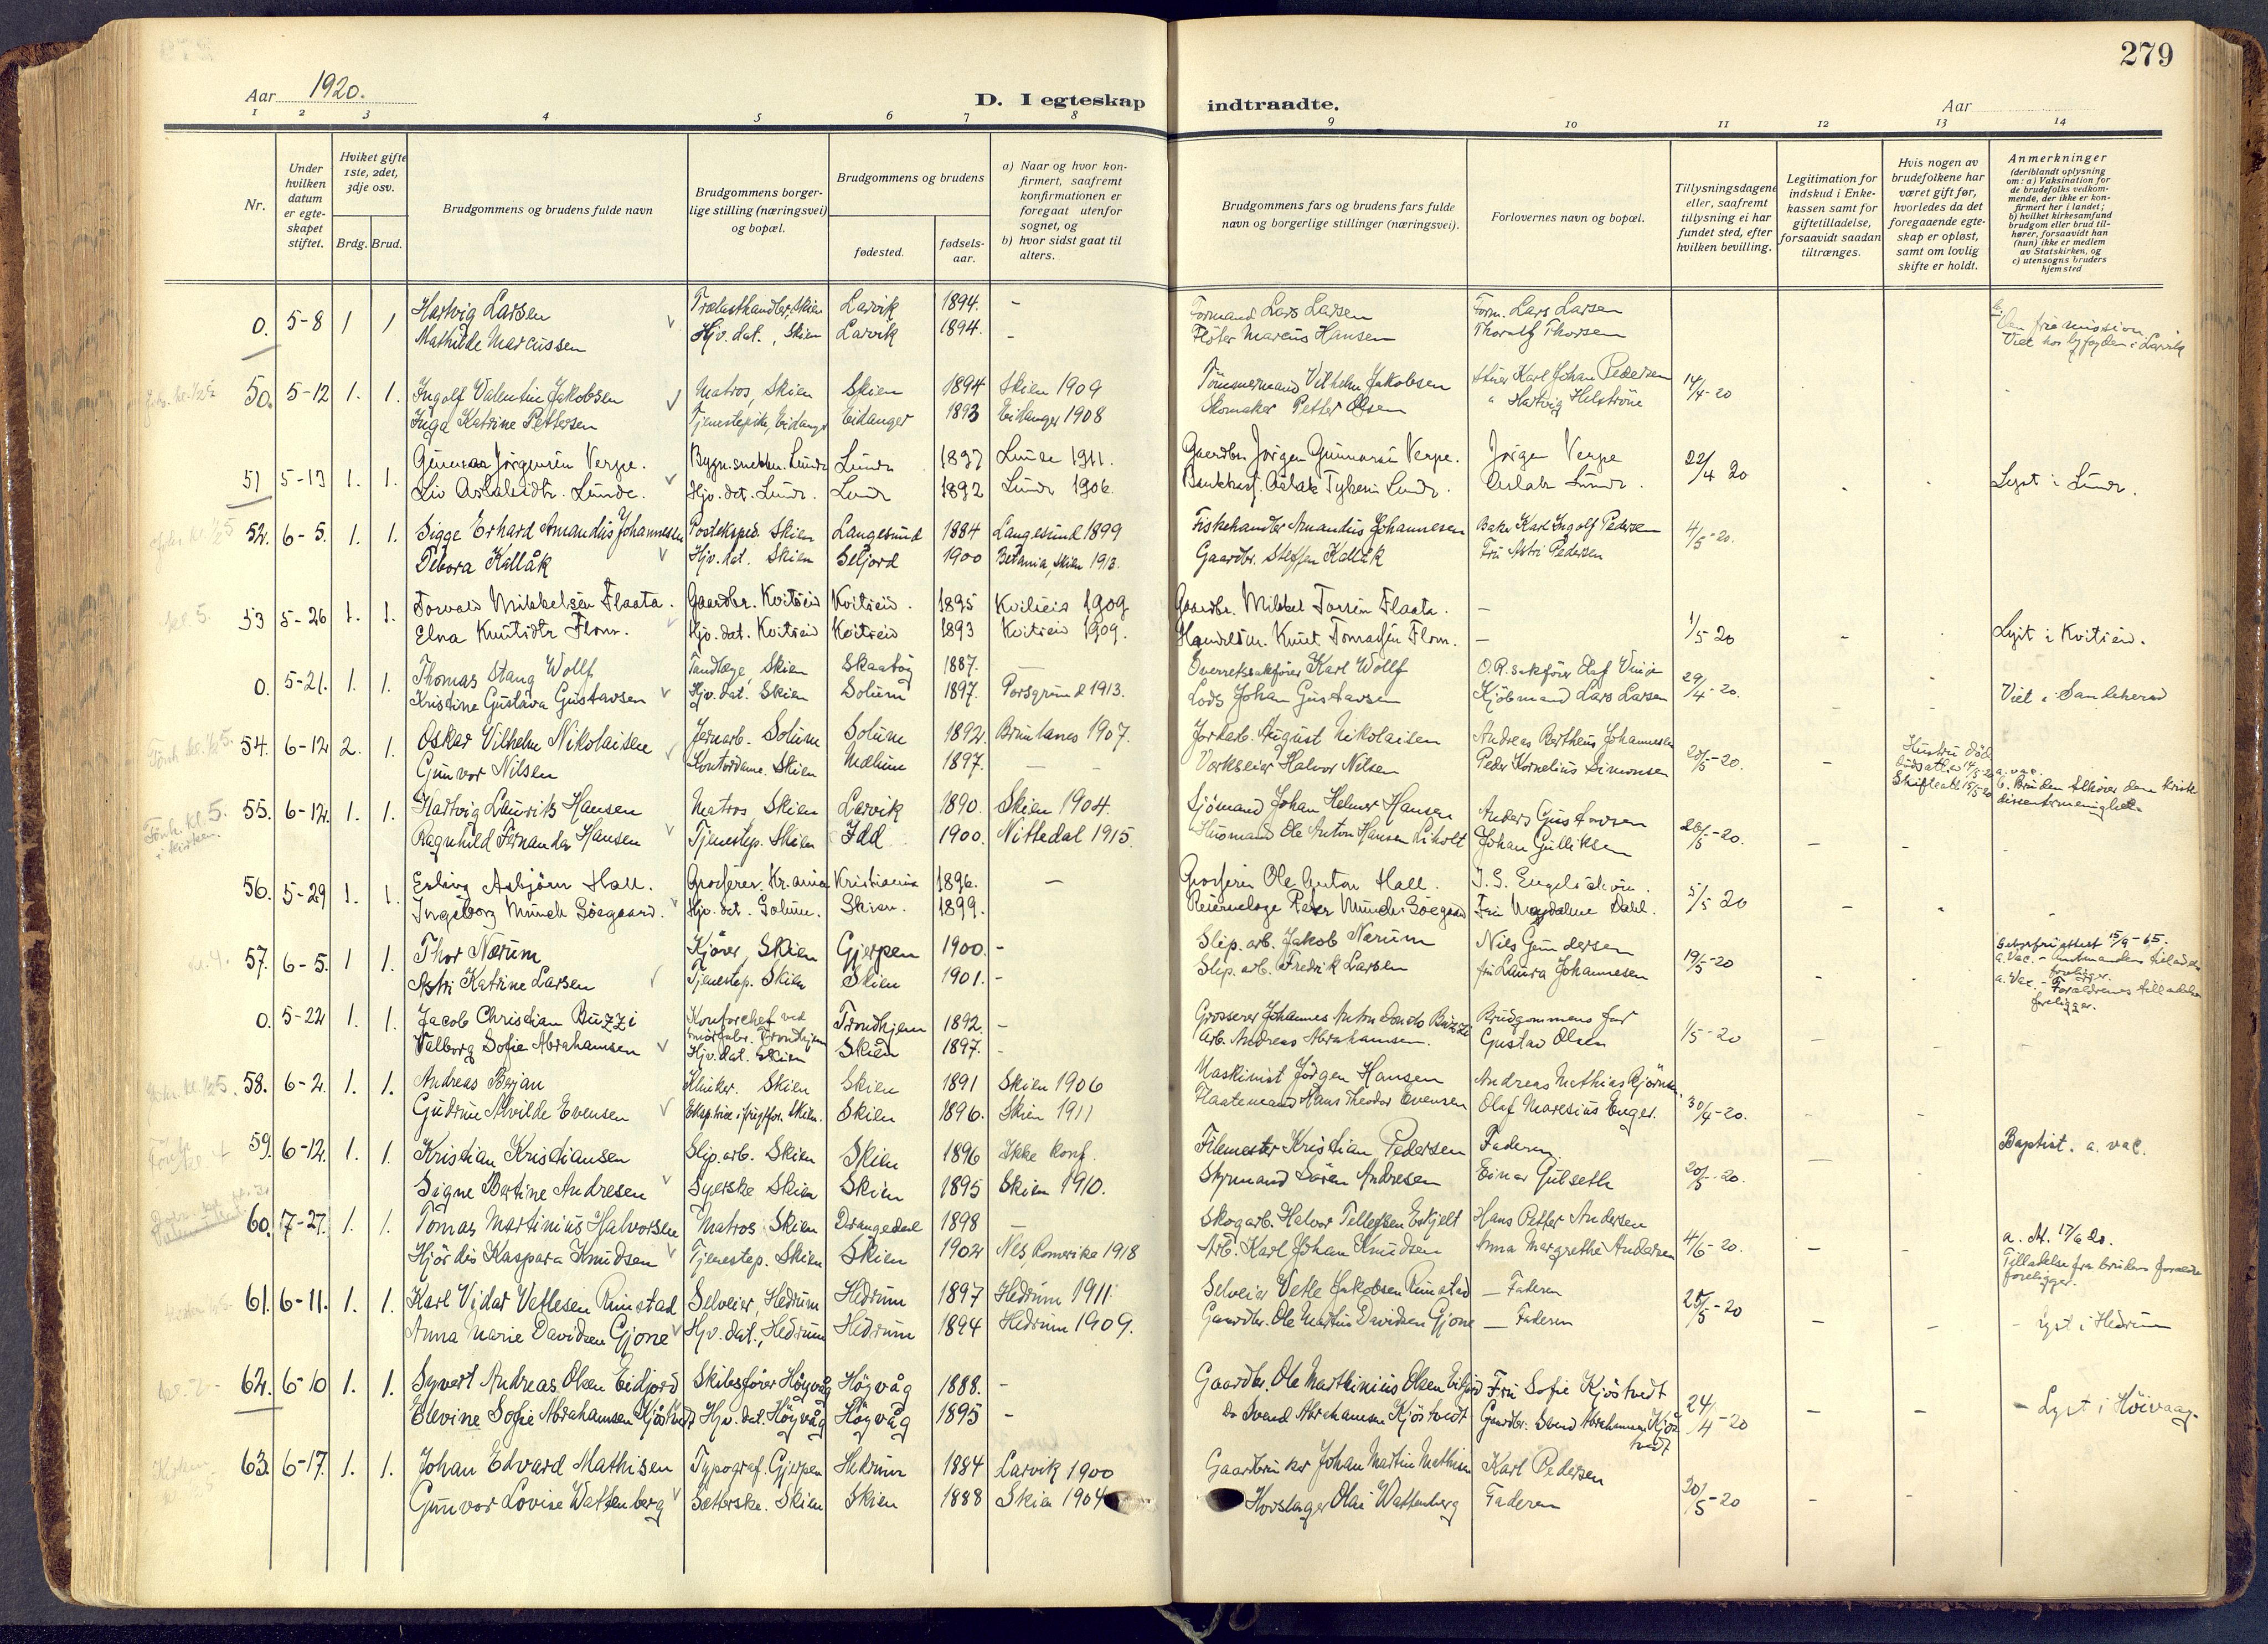 279
Aar 1920.
D. I egteskap indtraadte.
Aar
1 2 3 4 5 6 7 8 9 10 11 12 13 14
Nr.
Under hvilken datum er egteskapet stiftet.
Hviket gifte 1ste, 2det, 3dje osv.
Brdg. Brud.
Brudgommens og brudens fulde navn
Brudgommens borgerlige stilling (næringsvei) og bopæl.
Brudgommens og brudens
fødested.
fødselsaar.
a) Naar og hvor konfirmert, saafremt konfirmationen er foregaat utenfor sognet, og
b) hvor sidst gaat til alters.
Brudgommens fars og brudens fars fulde navn og borgerlige stillinger (næringsvei).
Forlovernes navn og bopæl.
Tillysningsdagene eller, saafremt tillysning ei har fundet sted, efter hvilken bevilling.
Legitimation for indskud i Enkekassen samt for giftetilladelse, forsaavidt saadan tiltrænges.
Hvis nogen av brudefolkene har været gift før, hvorledes da det foregaaende egteskap er opløst, samt om lovlig skifte er holdt.
Anmerkninger (deriblandt oplysning om: a) Vaksination for de brudefolks vedkommende, der ikke er konfirmert her i landet; b) hvilket kirkesamfund brudgom eller brud tilhører, forsaavidt han (hun) ikke er medlem av Statskirken, og c) utensogns bruders hjemsted
0. 5-8 1 1 Hartvig Larsen Trælasthandler, Skien Larvik 1894. - Formand Lars Larsen Form. Lars Larsen
Mathilde Marcussen Hjv. dat., Skien Larvik 1894. - Fløter Marcus Hansen Thoralf Thorsen
Den frie mission.
Viet hos byfogden i Larvik
50. 5-12 1. 1. Ingolf Valentin Jakobsen Matros, Skien Skien 1894 Skien 1909 Tømmermand Vilhelm Jakobsen Karl Johan Pedersen 14/4-20
Inga Katrine Pettersen Tjenestepike, Eidanger Eidanger 1893 Eidanger 1908 Skomaker Petter Olsen " Hartvig Helstrøne
51 5-13 1. 1. Gunnar Jørgensen Verpe. Bygn.snekker. Lunde Lunde 1897 Lunde 1911. Gaardbr. Jørgen Gunnarsen Verpe. Jørgen Verpe 22/4 20
Liv Aslaksdtr. Lunde. Hjv. dat. Lunde. Lunde 1892 Lunde 1906. Aslak Lunde. Lyst i Lunde.
52. 6-5. 1. 1. Sigge Erhard Amandus Johannesen Postekspd. Skien Langesund 1884 Langesund 1899 Fiskehandler Amandus Johannesen Baker Karl Ingolf Pedersen 4/5-20.
Debora Kallåk Hjv. dat. Skien Seljord 1900 Betania, Skien 1913. Gaardbr. Steffen Kallåk Fru Astri Pedersen
53 5-26 1. 1. Torvald Mikkelsen Flaata. Gaardbr. Kvitseid Kvitseid. 1895 Kvitseid 1909 Gaardbr. Mikkel Flaata. - 1/5-20
Elna Knutsdtr Flom. Hjv. dat. Kvitseid Kvitseid 1893 Kvitseid 1909. Handelsm. Knut Tomassen Flom. - Lyst i Kvitseid.
0. 5-21. 1. 1. Thomas Stang Wolff Tandlæge, Skien Skaatøy 1887. - Overretssakfører Karl Wolff O.R.sakfører Olaf 29/4-20.
Kristine Gustava Gustavsen Hjv. dat. Skien Solum 1897. Porsgrund 1913. Lods Johan Gustavsen Kjøbmand Lars Larsen Viet i Sandeherred
54. 6-12 2. 1. Oskar Vilhelm Nikolaisen Jernarb. Solum Solum 1892. Brunlanes 1907. Jordarb. August Nikolaisen Andreas Bertheus Johannesen 20/5-20.
Gunvor Nilsen Kontordame. Skien Mælum 1897. - - Verkseier Halvor Nilsen Peder Kornelius Simonsen
Hustru død
Skifteatt. 15/5-20
a. vac.
b. Bruden tilhører den kristne dissentermenighet
55. 6-12. 1. 1. Hartvig Laurits Hansen Matros, Skien Larvik 1890. Skien 1904. Sjømand Johan Helmer Hansen Anders Gustavsen 26/5-20.
Ragnhild Fernanda Hansen Tjenestep. Skien Idd 1900. Nittedal 1915. Husmand Ole Anton Hansen Liholt Johan Gulliksen
56. 5-29 1. 1. Erling Asbjørn Hall. Grosserer. Kr.ania Kristiania 1896. - Grosserer Ole Anton Hall. 5/5 20
Ingeborg Munch Søegaard. Hjv. dat. Solum. Skien. 1899. Peter Munch Søegaard Fru Magdalene Dahl.
57. 6-5. 1 1. Thor Nærum Kjører, Skien Gjerpen 1900. - Slip. arb. Jakob Nærum Nils Gundersen 19/5-20
Astri Katrine Larsen Tjenestep. Skien Skien 1901. - Slip. arb. Fredrik Larsen fru Laura Johannesen
a. Vac. - Amtmandens tilladelse foreligger.
a. Vac. - Forældrenes tilladelse foreligger.
0. 5-22 1. 1. Jacob Christian Buzzi Kontorchef ved Trondhjem 1892. - Grosserer Johannes Anton Donato Buzzi Brudgommens far 1/5-20
Valborg Sofie Abrahamsen Hjv. dat. Skien Skien 1897. - Arb. Andreas Abrahamsen. Gustav Olsen
58. 6-2. 1. 1. Andreas Berjan Klinker. Skien Skien 1891 Skien 1906 Maskinist Jørgen Hansen Andreas Mathias 30/4-20.
Gudrun Alvilde Evensen Skien. Skien 1896. Skien 1911 Flaatemand Hans Theodor Evensen Olaf Maresius Enger.
59. 6-12. 1. 1. Kristian Kristiansen Slip. arb. Skien Skien 1896 Ikke konf. Filemester Kristian Pedersen Faderen Baptist. a. vac.
Signe Bertine Andresen Syerske Skien Skien 1895 Skien 1910. Styrmand Søren Andresen Einar Gulseth 20/5-20.
60. 7-27. 1. 1. Tomas Martinius Halvorsen Matros. Skien Drangedal 1898 - Skogarb. Halvor Tellefsen Eskjelt Hans Petter Andersen 4/6-20.
Hjørdis Kaspara Knudsen Tjenestep. Skien Skien 1902 Nes, Romerike 1918 Arb. Karl Johan Knudsen Anna Margrethe Andersen
a. At. 17/6 20.
Tilladelse fra brudens forældre foreligger.
61. 6-11. 1. 1. Karl Vidar Vetlesen Rimstad Selveier, Hedrum Hedrum 1897 Hedrum 1911. Selveier Vetle Jakobsen Rimstad - Faderen 25/5-20
Anna Marie Davidsen Gjone Hjv. dat., Hedrum Hedrum 1894 Hedrum 1909. Gaardbr. Ole Martin Davidsen Gjone - Faderen - Lyst i Hedrum
62. 6-10 1. 1. Syvert Andreas Olsen Eidjord Skibsfører Høyvåg Høyvåg 1888. - Gaardbr. Ole Marthinius Olsen Eidjord Fru Sofie Kjøstvedt 24/4-20
Elevine Sofie Abrahamsen Kjøstvedt Hjv. dat. Høyvåg Høyvåg 1895 - Do Svend Abrahamsen Kjøstvedt Gaardbr. Svend Abrahamsen Kjøstvedt - Lyst i Høivaag.
63. 6-17. 1. 1. Johan Edvard Mathisen Typograf. Gjerpen Hedrum 1884 Larvik 1900 Gaardbruker Johan Martin Mathisen Karl Pedersen 20/5-20
Gunvor Lovise Wattenberg Sætterske. Skien Skien 1888 Skien 1904 Hovslager Olai Wattenberg Faderen